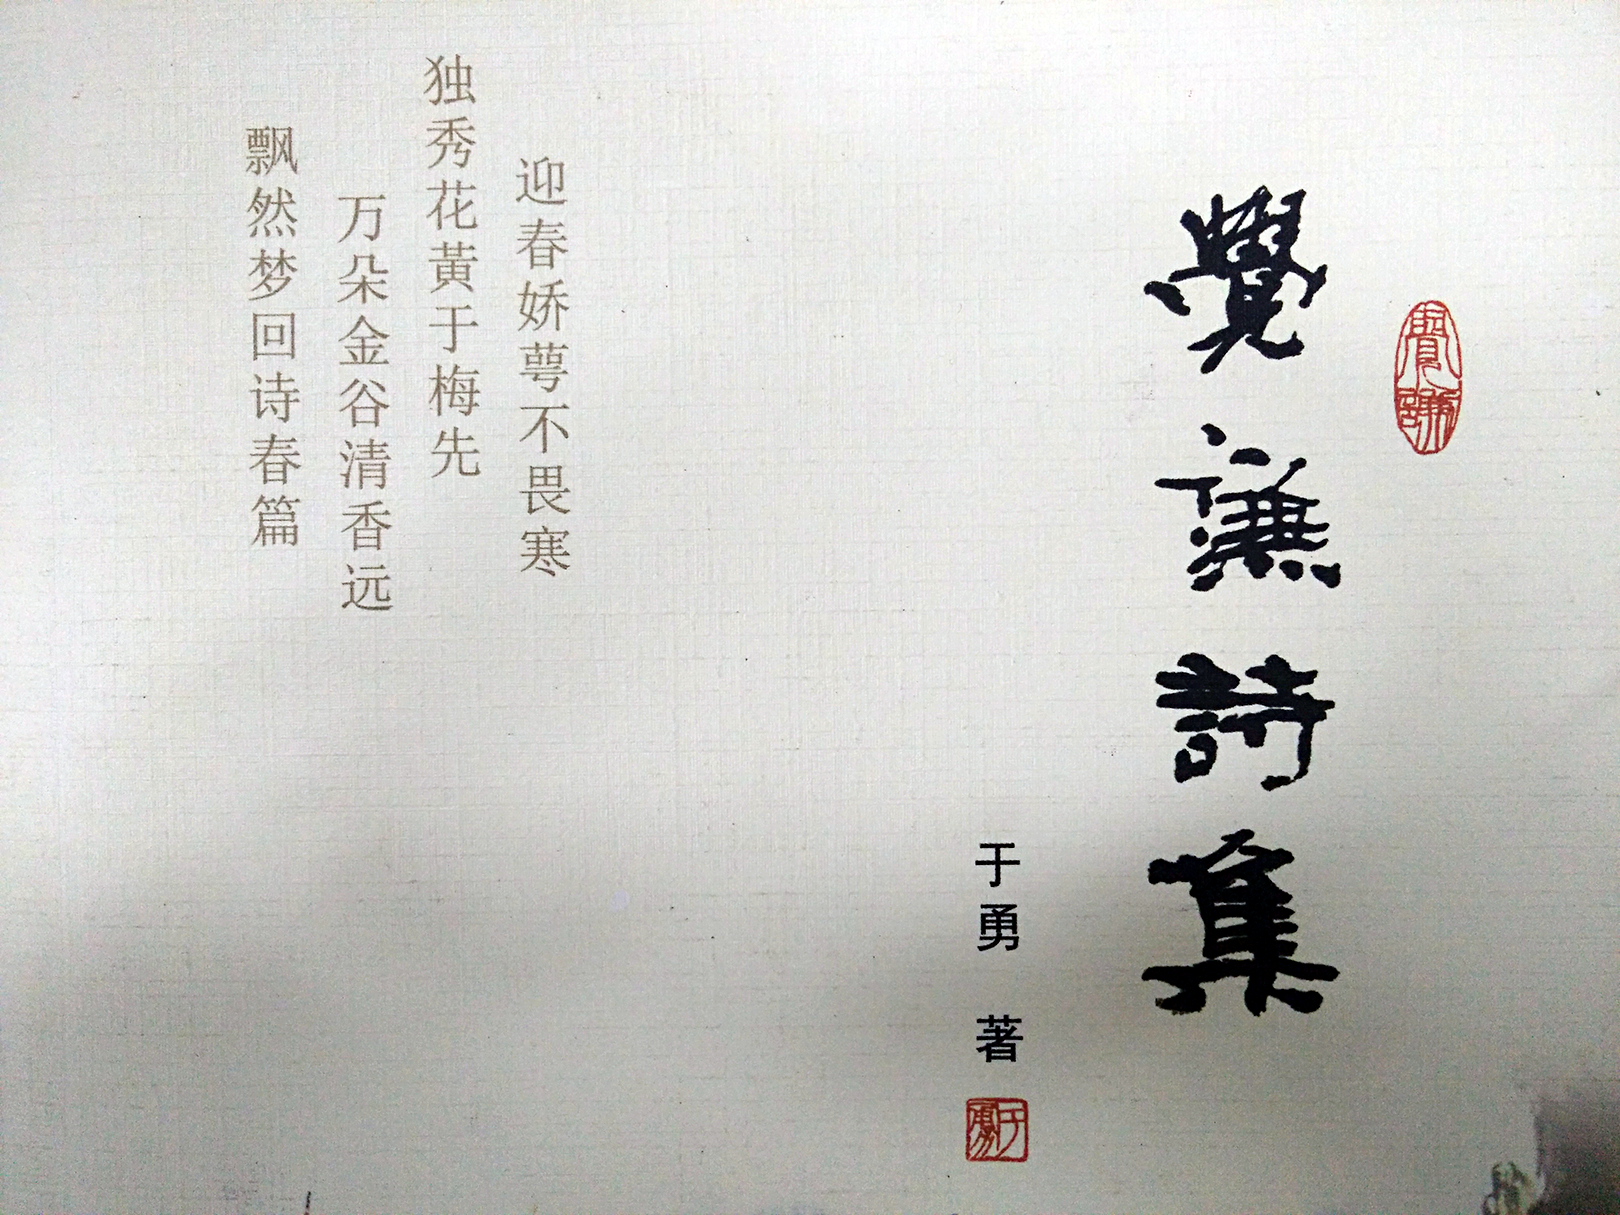 覺謙
覺謙詩集
于勇 著
于勇
迎春娇萼不畏寒
独秀花黃于梅先
万朵金谷清香远
飘然梦回诗春篇